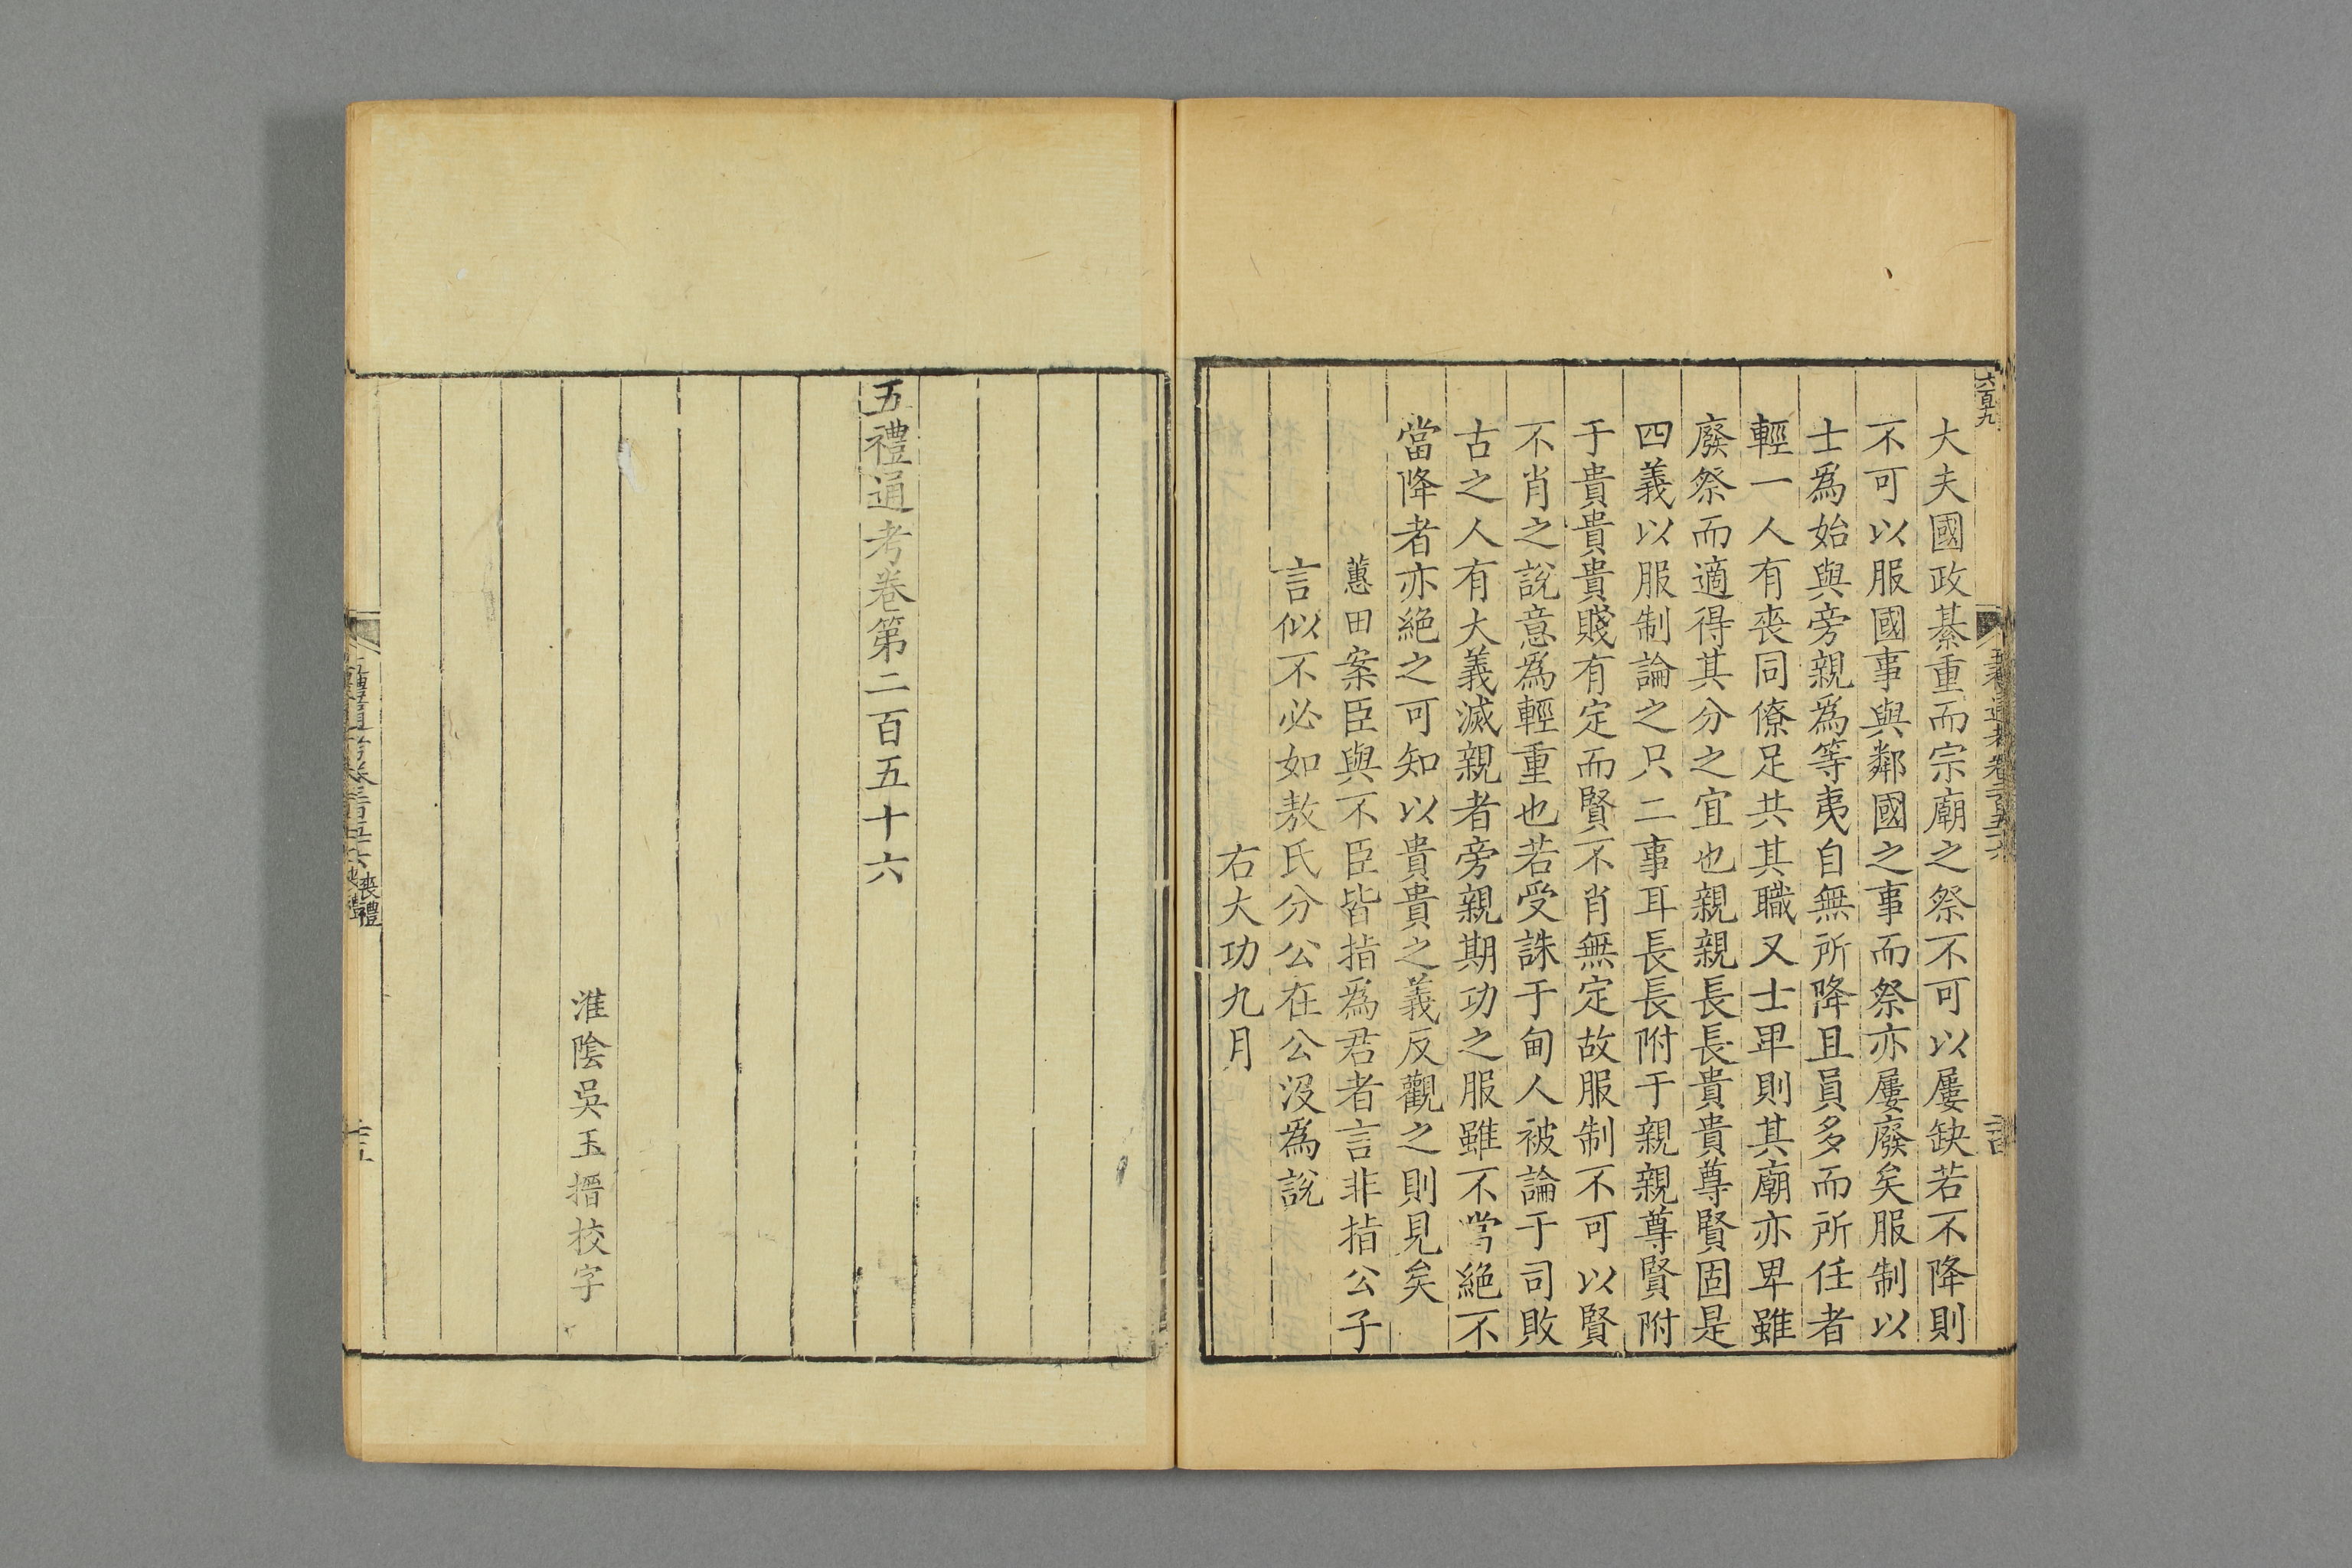 大夫國政綦重而宗廟之祭不可以屢缺若不降則
不可以服國事與鄰國之事而祭亦屢廢矣服制以
士為始與旁親為等夷自無所降且員多而所任者
輕一人有喪同僚足共其職又士卑則其廟亦卑雖
廢祭而適得其分之宜也親親長長貴貴尊賢固是
四義以服制論之只二事耳長長附于親親尊賢附
于貴貴貴賤有定而賢不肖無定故服制不可以賢
不肖之說意為輕重也若受誅于甸人被論于司敗
古之人有大義滅親者旁親期功之服雖不當絕不
當降者亦絕之可知以貴貴之義反觀之則見矣
蕙田案臣與不臣皆指為君者言非指公子
言似不必如敖氏分公在公沒為說
右大功九月
五禮通考卷第二百五十六
淮陰吳玉搢校字
六百九
喪禮